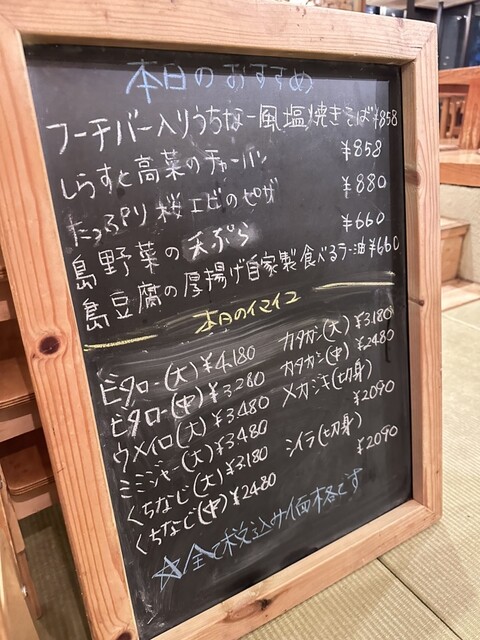 本日のおすすめ
フーチバー入りうちなー風塩焼きそば¥858
しらすと高菜のチャーハン ¥858
たっぷり桜エビのピザ ¥880
島野菜の天ぷら ¥660
島豆腐の厚揚げ自家製食べるラー油¥660
本日のイマイユ
ビタロー(大)¥4180
ビタロー(中)¥3280
ウメイロ(大)¥3480
ミミジャー(大)¥3480
くちなじ(大)¥3180
くちなじ(中)¥2480
カタカシ(大)¥3180
カタカシ(中)¥2480
メカジキ(切身)
¥2090
シイラ(切身)
¥2090
☆全て税込み価格です